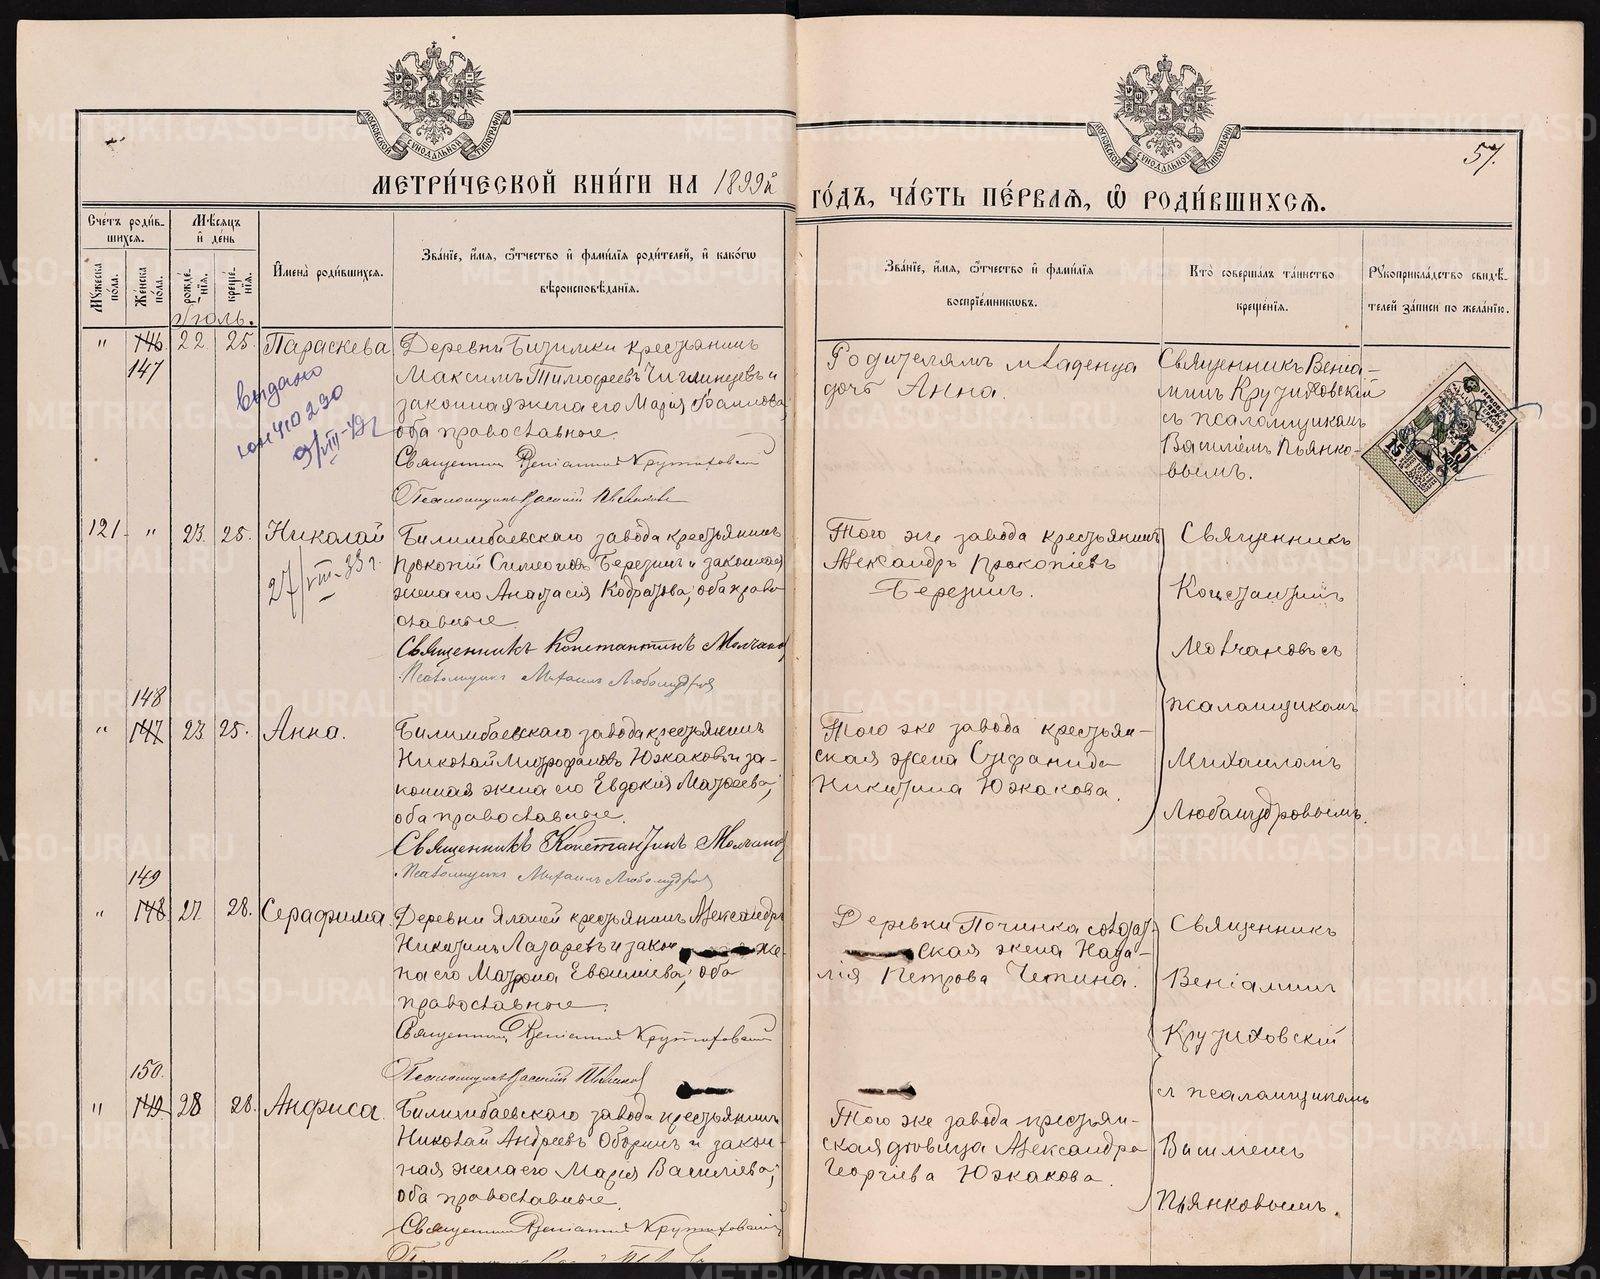 МОСКОВСКОЙ СѴНОДАЛЬНОЙ ТИПОГРАФІИ
МОСКОВСКОЙ СѴНОДАЛЬНОЙ ТИПОГРАФІИ
57.
МЕТРИ́ЧЕСКОЙ КНИ́ГИ НА 1899й
ГО́ДЪ, ЧА́СТЬ ПЕ́РВАЯ, Ѽ РОДИ́ВШИХСЯ.
Сче́тъ роди́в-
шихся.
Мѣ́сяцъ
и̂ де́нь
Мꙋ́жеска по́ла.
Же́нска по́ла.
рожде́-нїя.
креще́-нїя.
И̂мена̀ роди́вшихся.
Зва́нїе, и̂́мя, ѻ҆́тчество и̂ фамі́лїя роди́телей, и̂ како́гѡ
вѣроисповѣ́данїя.
Зва́нїе, и̂́мя, ѻ҆́тчество и̂ фамі́лїя
воспрїе́мникѡвъ.
Кто̀ соверша́лъ та́инство
креще́нїя.
Рꙋкоприкла́дство свидѣ́-
телей за́писи по жела́нїю.
Іюль.
" 146 22 25. Параскева
147
Деревни Битимки крестьянинъ
Максимъ Тимофеевъ и
законная жена его Марія
оба православные.
Священникъ Веніаминъ Крутиховскій
Псаломщикъ Василій Пьянковъ
выдано
Родителямъ младенца
дочь Анна.
Священникъ Веніа-
минъ Крутиховскій
съ псаломщикомъ
Василіемъ Пьянко-
вымъ.
15 15
121 " 23. 25. Николай
27/VIII-33 г.
Билимбаевскаго завода крестьянинъ
Прокопій Симеоновъ Березинъ и законная
жена его Анастасія Кодратова; оба право
славные.
Священникъ Константинъ Молчановъ
Псаломщикъ Михаилъ Любомудровъ
Того же завода крестьянинъ
Александръ Прокопіевъ
Березинъ.
Священникъ
Константинъ
Молчановъ съ
псаломщикомъ
Михаиломъ
Любомудровымъ.
148
" 147 23 25. Анна.
Билимбаевскаго завода крестьянинъ
Николай Митрофановъ Южаковъ и за-
конная жена его Евдокія Матѳеева;
оба православные.
Священникъ Константинъ Молчановъ
Псаломщикъ Михаилъ Любомудровъ
Того же завода крестьян-
ская жена Стефанида
Никитина Южакова.
149
" 148 27. 28. Серафима.
Деревни крестьянинъ Александръ
Никитинъ Лазаревъ и закон же-
на его Матрона ; оба
православные.
Священникъ Веніаминъ Крутиховскій
Псаломщикъ Василій Пьянковъ
Деревни Починка солдат-
ская жена Ната-
лія Петрова Четина.
Священникъ
Веніаминъ
Крутиховскій
съ псаломщикомъ
Василіемъ
Пьянковымъ.
150.
" 149. 28 28. Анфиса.
Билимбаевскаго завода крестьянинъ
Николай Андреевъ Оборинъ и закон-
ная жена его Марія Василіева;
оба православные.
Священникъ Веніаминъ Крутиховскій
Того же завода крестьян-
ская дѣвица Александра
Георгіева Южакова.
METRIKI.GASO-URAL.RU